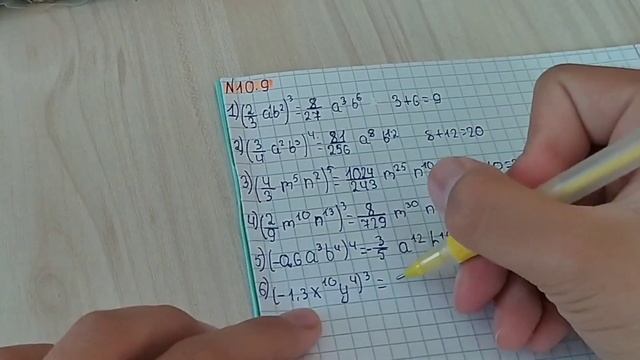 N10.9
1) (2/3 ab²)³ = 8/27 a³ b⁶ 3+6=9
2) (3/4 a² b³)⁴ = 81/256 a⁸ b¹² 8+12=20
3) (4/3 m⁵ n²)⁵ = 1024/243 m²⁵ n¹⁰
4) (2/9 m¹⁰ n¹³)³ = 8/729 m³⁰ n
5) (-0,6 a³ b⁴)⁴ = 3/5 a¹² b
6) (-1,3 x¹⁰ y⁴)³ =